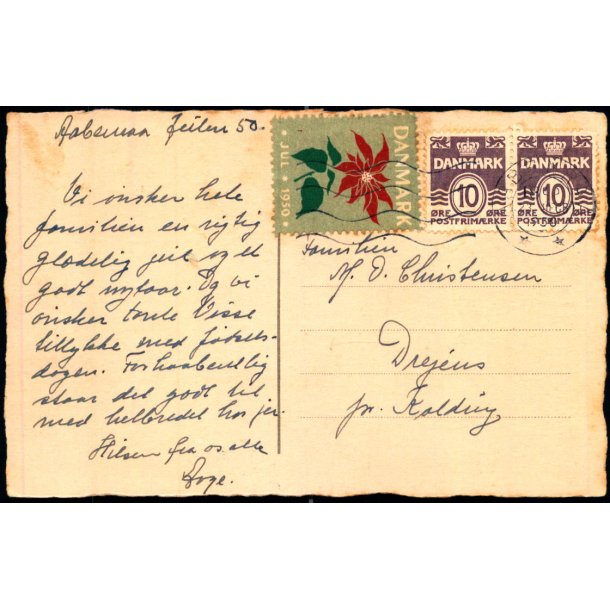 Aabenraa Julen 50.
JUL 1950
DANMARK
DANMARK
10
ØRE ØRE
POSTFRIMÆRKE
DANMARK
10
ØRE ØRE
POSTFRIMÆRKE
Vi ønsker hele
familien en rigtig
glædelig jul og et
godt nytaar. Og vi
ønsker tante Visse
tillykke med fødsels-
dagen. Forhaabentlig
staar det godt til
med helbredet hos jer.
Hilsen fra os alle
Familien
M. O. Christensen
Drejens
pr. Kolding